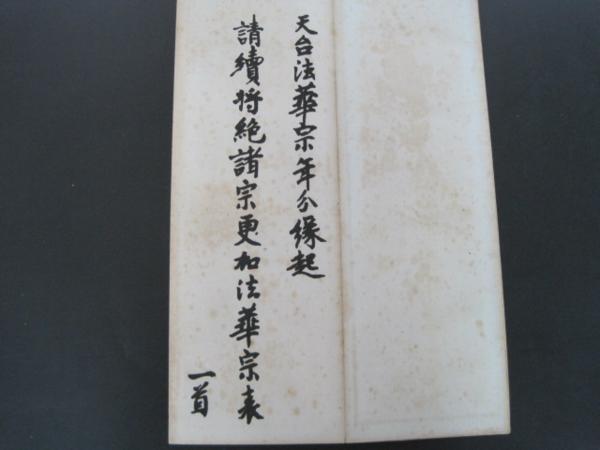 天台法華宗年分緣起
請續将絶諸宗更加法華宗表
一首